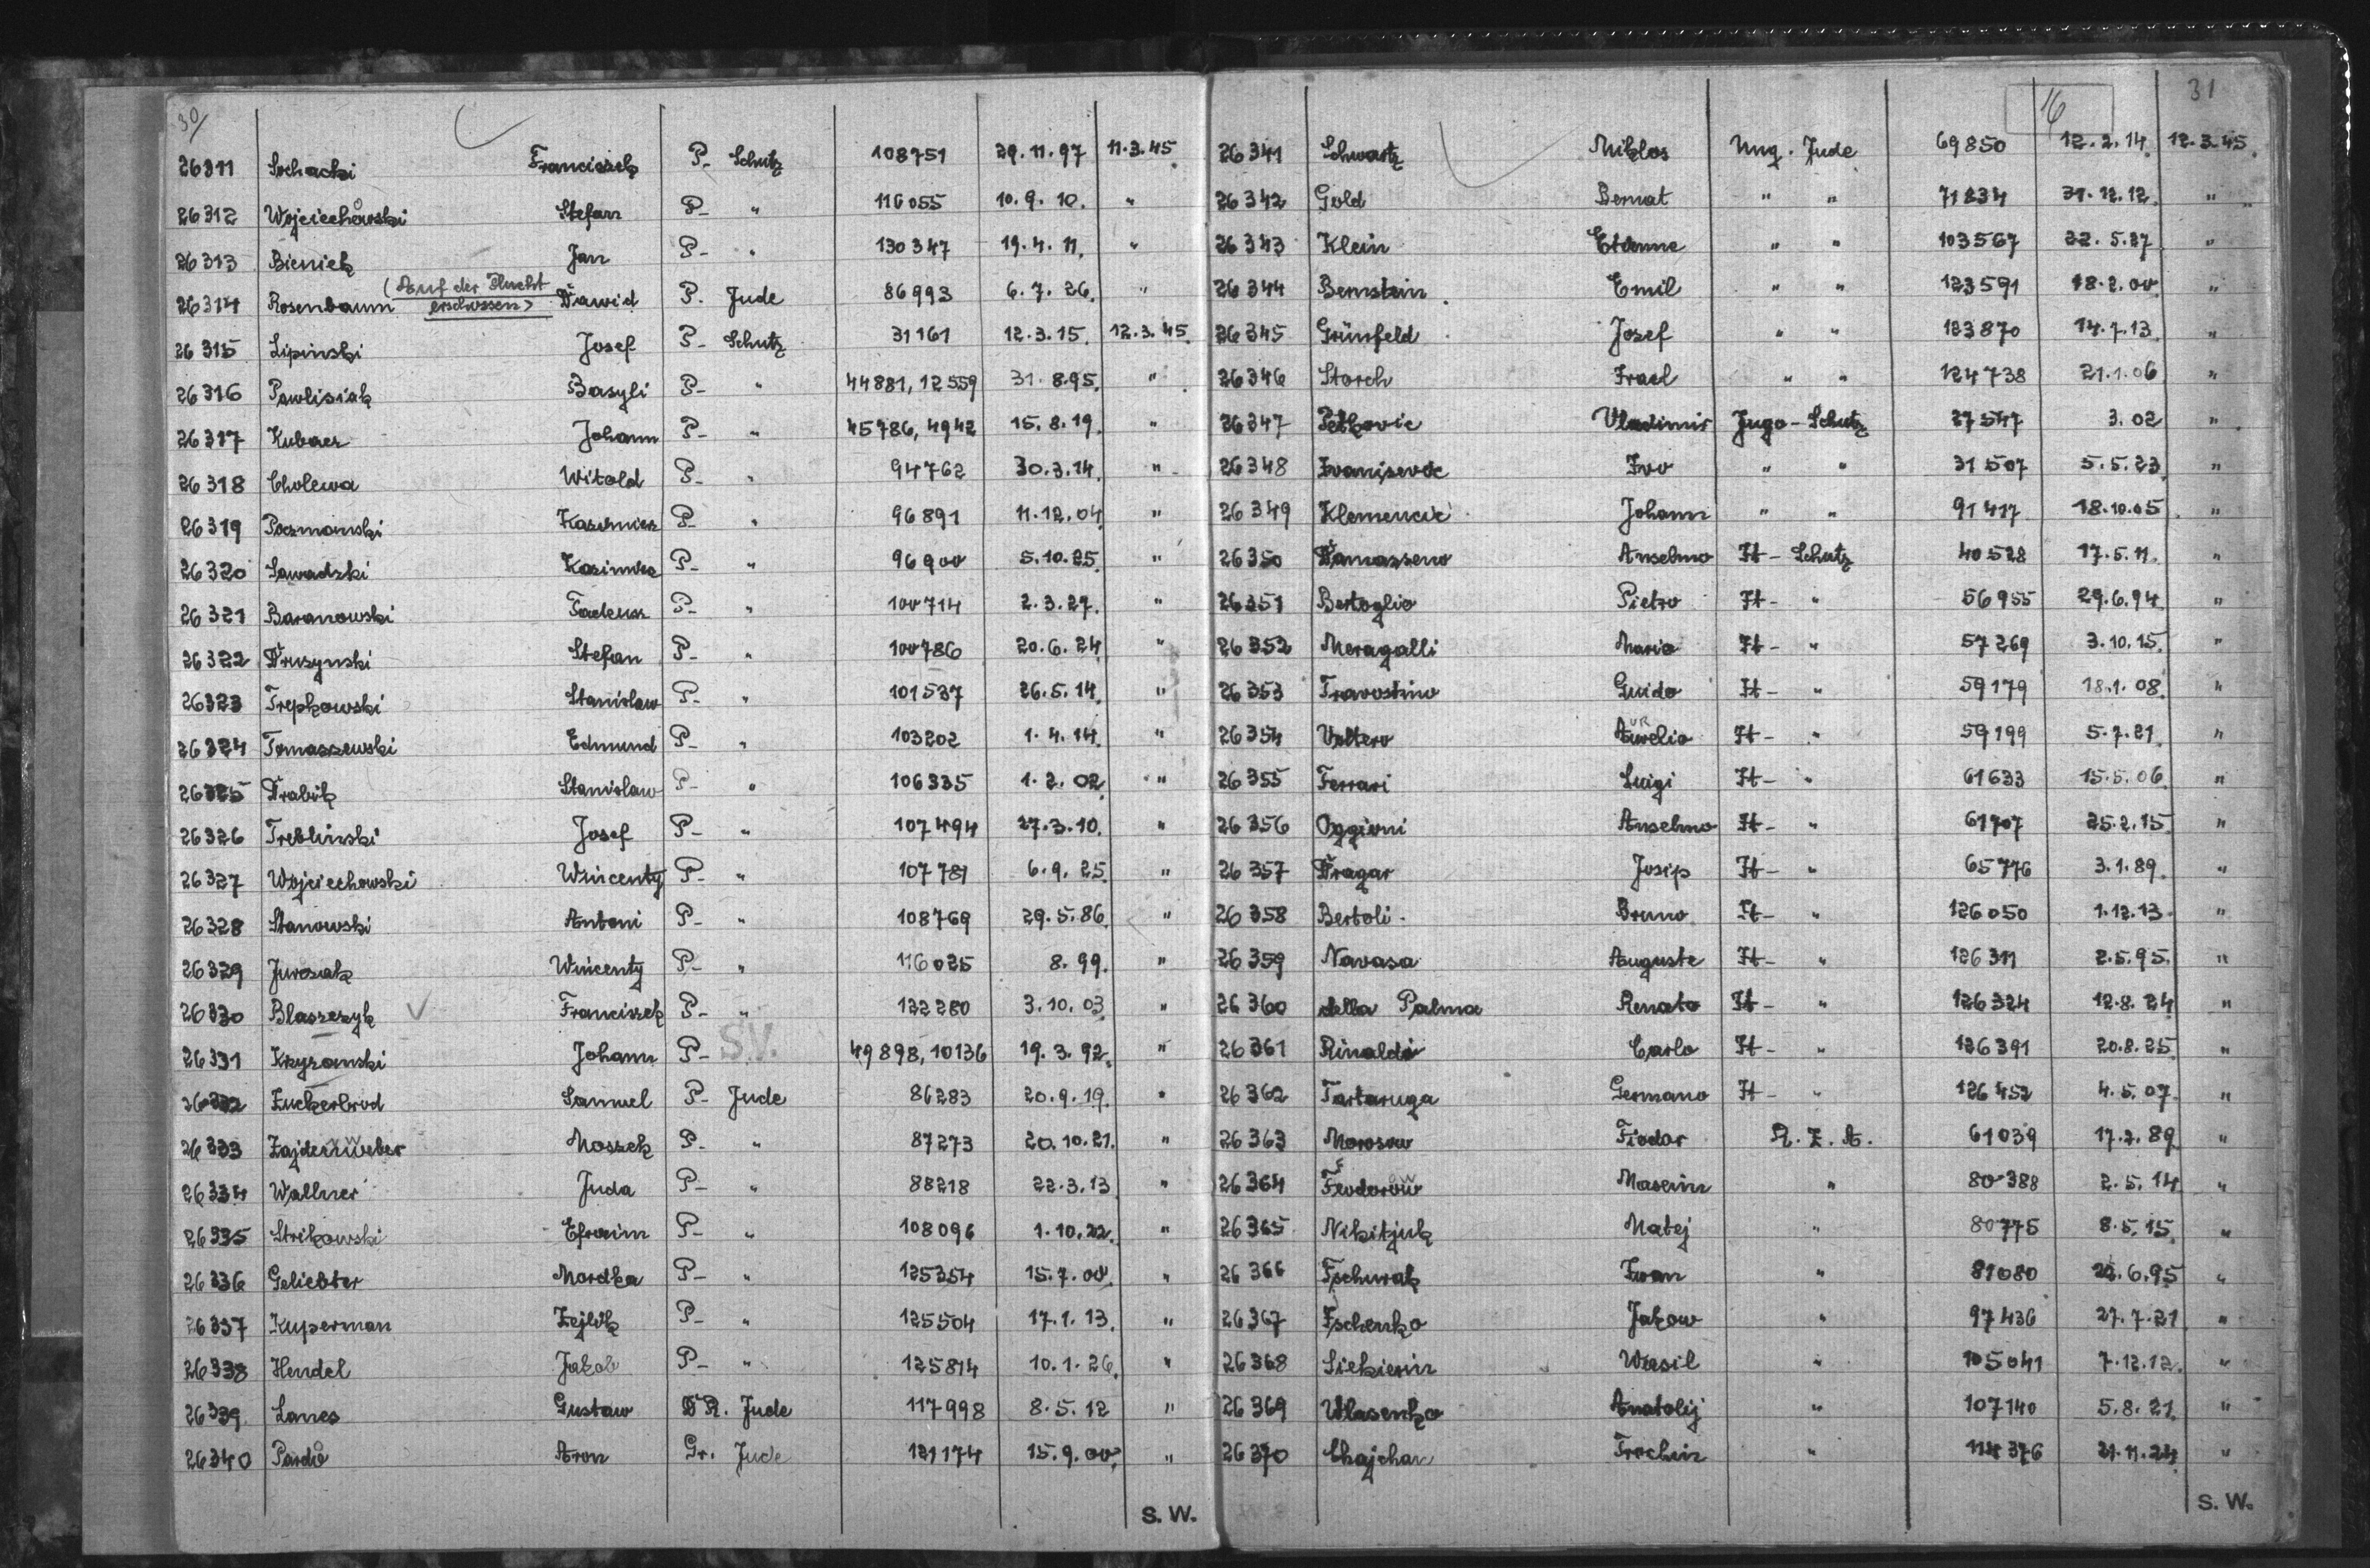 30/
26311 Sochacki Franciszek P- Schutz 108751 29.11.97 11.3.45.
26312 Wojciechowski Stefan P- " 116055 10.9.10. "
26313 Bieniek Jan P- " 130347 19.4.11. "
(Auf der Flucht
26314 Rosenbaum erschossen) Dawid P. Jude 86993 6.7.26. "
26315 Lipinski Josef P- Schutz 31161 12.3.15. 12.3.45.
26316 Pawlisiak Basyli P- " 44881, 12559 31.8.95. "
26317 Kubacz Johann P- " 45786, 4942 15.8.19. "
26318 Cholewa Witold P- " 94762 30.3.14. "
26319 Poczmanski Kasimierz P- " 96891 11.12.04. "
26320 Sawadzki Kasimierz P- " 96900 5.10.25. "
26321 Baranowski Tadeusz P- " 100714 2.3.27. "
26322 Drusynski Stefan P- " 100786 20.6.24. "
26323 Trepkowski Stanislaw P- " 101537 26.5.14. "
26324 Tomaszewski Edmund P- " 103202 1.4.14. "
26325 Drabik Stanislaw P- " 106335 1.2.02. "
26326 Treblinski Josef P- " 107494 27.3.10. "
26327 Wojciechowski Wincenty P- " 107781 6.9.25. "
26328 Stanowski Antoni P- " 108769 29.5.86. "
26329 Jurczak Wincenty P- " 116025 8.99. "
26330 Blaszczyk Franciszek P- " 122280 3.10.03. "
26331 Krzyzanski Johann P- SV. 49898, 10136 19.3.92. "
26332 Zuckerbrod Samuel P- Jude 86283 20.9.19. "
26333 Zajdenweber Moszek P- " 87273 20.10.21. "
26334 Wallner Juda P- " 88218 22.3.13 "
26335 Strikowski Efraim P- " 108096 1.10.22. "
26336 Geliebter Mordka P- " 125354 15.7.00. "
26337 Kuperman Zejlik P- " 125504 17.1.13. "
26338 Hendel Jakob P- " 125814 10.1.26. "
26339 Lanes Gustaw DR. Jude 117998 8.5.12 "
26340 Pardo Aron Gr. Jude 121174 15.9.00. "
S. W.
16 31
26341 Schwartz Miklos Ung. Jude 69850 12.2.14. 12.3.45.
26342 Gold Bernat " " 71834 31.12.12. "
26343 Klein Etienne " " 103567 22.5.27 "
26344 Bernstein Emil " " 123591 18.2.00. "
26345 Grünfeld Josef " " 123870 14.7.13. "
26346 Storch Israel " " 124738 21.1.06 "
26347 Petkovic Vladimir Jugo-Schutz 27547 3.02 "
26348 Ivanisevic Ivo " " 31507 5.5.23 "
26349 Klemencic Johann " " 91417 18.10.05. "
26350 Damasseno Anselmo It- Schutz 40528 17.5.11. "
26351 Bertoglio Pietro It- " 56955 29.6.94. "
26352 Meragalli Mario It- " 57269 3.10.15. "
26353 Travostino Guido It- " 59179 18.1.08. "
UR
26354 Voltero Aurelio It- " 59199 5.7.21. "
26355 Ferrari Luigi It- " 61633 15.5.06. "
26356 Oggioni Anselmo It- " 61707 25.2.15. "
26357 Dragar Josip It- " 65776 3.1.89. "
26358 Bertoli Bruno It- " 126050 1.12.13. "
26359 Navasa Auguste It- " 126311 2.5.95. "
26360 della Palma Renato It- " 126324 12.8.24 "
26361 Rinaldi Carlo It- " 126391 20.8.25. "
26362 Tartaruga Germano It- " 126452 4.5.07. "
26363 Morosow Fiodor R.Z.A. 61039 17.2.89. "
26364 Feodorow Maseim " 80388 2.5.14. "
26365 Nikitjuk Matej " 80775 8.5.15. "
26366 Tschurak Iwan " 81080 22.6.95 "
26367 Ischenko Jakow " 97436 27.7.21. "
26368 Siekierin Wasil " 105041 7.12.12. "
26369 Wlasenko Anatolij " 107140 5.8.21. "
26370 Chajchan Trochin " 114376 21.11.24. "
S. W.